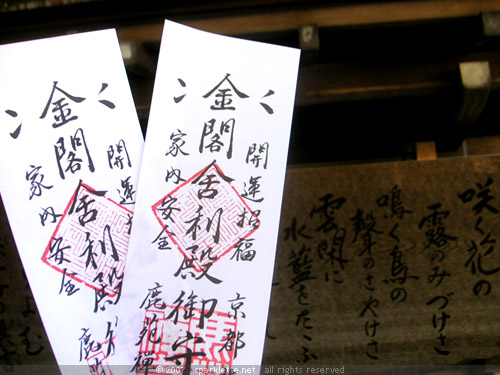 開運
金閣舍利殿
家内安全
鹿苑
開運招福
京都
金閣舍利殿御守
家内安全
鹿苑禅
咲く花の
露のみづけさ
鳴く鳥の
聲のさやけさ
雲閑に
水藍をたふ
© 2007 sparklette.net all rights reserved